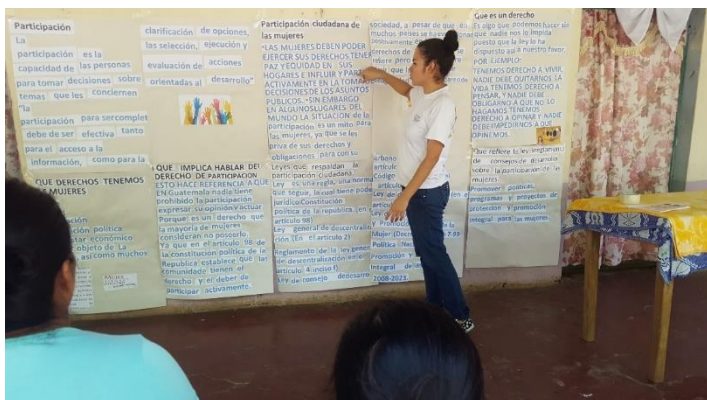 Participación
La
participación es la
capacidad de las personas
para tomar decisiones sobre
temas que les conciernen
"la
participación para sercomplet
debe de ser efectiva tanto
para el acceso a la
información, como para la
clarificación de opciones,
las selección, ejecución y
evaluación de acciones
orientadas al desarrollo"
QUE DERECHOS TENEMOS
MUJERES
participación política
económico
objeto de "La
así como muchos
QUE IMPLICA HABLAR DEL
DERECHO DE PARTICIPACION
ESTO HACE REFERENCIA A QUE
EN Guatemala nadie tiene
prohibido la participación
expresar su opinión y actuar
Porque es un derecho que
la mayoría de mujeres
consideran no poseerlo.
Ya que en el artículo 98 de
la constitucion política de la
Republica establece que las
comunidade tienen el
derecho y el deber de
participar activamente.
Participación ciudadana de
las mujeres
"LAS MUJERES DEBEN PODER
EJERCER SUS DERECHOS TENER
PAZ Y EQUIDAD EN SUS
HOGARES E INFLUIR Y
ACTIVAMENTE EN LA TOMA
DECISIONES DE LOS ASUNTOS
PUBLICOS. "SIN EMBARGO
EN ALGUNOSLUGARES DEL
MUNDO LA SITUACION de la
participación es un mito para
las mujeres, ya que se les
priva de sus derechos y
obligaciones para con su
Leyes que respaldan la
participación ciudadana
Ley es una regla, una norma
que seguir, la cual tiene poder
jurídico Constitución
política de la república. (en
artículo 98)
Ley general de descentraliza
ción (En el artículo 2)
Reglamento de la ley general
de descentralización en el
artículo 4, inciso f)
Ley de consejo desarro
sociedad, a pesar de que
muchos países se
refiere
artículo
Código
Ley
y Promoción
Mujer (Decreto 7-99
Política Nac
Promoción y
Integral de las
2008-2023.
Que es un derecho
Es algo que podemos hacer sin
que nadie nos lo impida
puesto que la ley lo ha
dispuesto así a nuestro favor.
POR EJEMPLO:
TENEMOS DERECHO A VIVIR,
NADIE DEBE QUITARNOS LA
VIDA TENEMOS DERECHO A
PENSAR, Y NADIE DEBE
OBLIGARNO A QUE NO LO
HAGAMOS TENEMOS
DERECHO A OPINAR Y NADIE
DEBEIMPEDIRNOS A QUE
OPINEMOS.
Que refiere la ley reglamento
de consejos de desarrollo
sobre la participación de las
mujeres
Promover políticas,
programas y proyectos de
protección y promoción
integral para las mujeres.